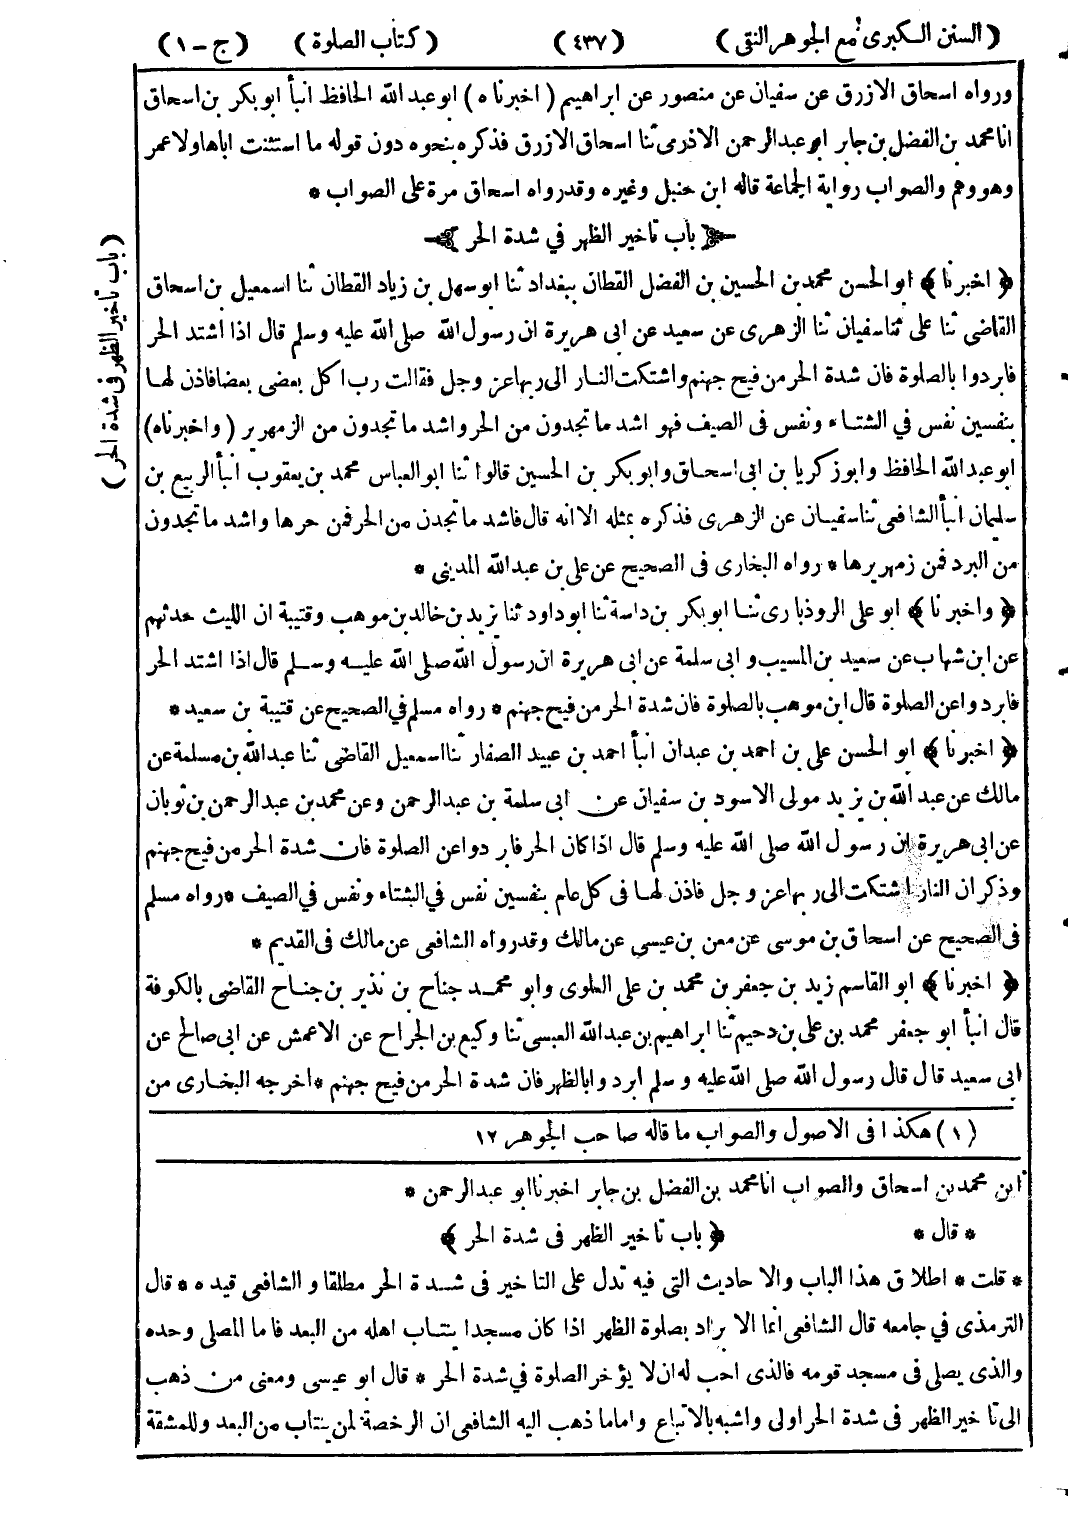 (السنن الكبرى مع الجوهر النقى) (٤٣٧) (كتاب الصلوة) (ج - ١)
ورواه اسحاق الازرق عن سفيان عن منصور عن ابراهيم (اخبرناه) ابو عبد الله الحافظ انبأ ابو بكر بن اسحاق
انا محمد بن الفضل بن جابر ابو عبد الرحمن الاذرمى ثنا اسحاق الازرق فذكره بنحوه دون قوله ما استثنت اباها ولا عمر
وهو وهم والصواب رواية الجماعة قاله ابن حنبل وغيره وقد رواه اسحاق مرة على الصواب *
باب تأخير الظهر في شدة الحر
(باب تأخير الظهر فى شدة الحر)
﴿اخبرنا﴾ ابو الحسن محمد بن الحسين بن الفضل القطان ببغداد ثنا ابو سهل بن زياد القطان ثنا اسمعيل بن اسحاق
القاضى ثنا على ثنا سفيان ثنا الزهرى عن سعيد عن ابى هريرة ان رسول الله صلى الله عليه وسلم قال اذا اشتد الحر
فابردوا بالصلوة فان شدة الحر من فيح جهنم واشتكت النار الى ربها عز وجل فقالت رب اكل بعضى بعضا فاذن لها
بنفسين نفس في الشتاء ونفس فى الصيف فهو اشد ما تجدون من الحر واشد ما تجدون من الزمهرير (واخبرناه)
ابو عبد الله الحافظ وابو زكريا بن ابى اسحاق وابو بكر بن الحسين قالوا ثنا ابو العباس محمد بن يعقوب انبأ الربيع بن
سليمان انبأ الشافعى ثنا سفيان عن الزهرى فذكره بمثله الا انه قال فاشد ما تجدن من الحر فمن حرها واشد ما تجدون
من البرد فمن زمهريرها * رواه البخارى فى الصحيح عن على بن عبد الله المدينى *
﴿واخبرنا﴾ ابو على الروذبارى ثنا ابو بكر بن داسة ثنا ابو داود ثنا يزيد بن خالد بن موهب وقتيبة ان الليث حدثهم
عن ابن شهاب عن سعيد بن المسيب وابى سلمة عن ابى هريرة ان رسول الله صلى الله عليه وسلم قال اذا اشتد الحر
فابردوا عن الصلوة قال ابن موهب بالصلوة فان شدة الحر من فيح جهنم * رواه مسلم في الصحيح عن قتيبة بن سعيد *
﴿اخبرنا﴾ ابو الحسن على بن احمد بن عبدان انبأ احمد بن عبيد الصفار ثنا اسمعيل القاضى ثنا عبد الله بن مسلمة عن
مالك عن عبد الله بن يزيد مولى الاسود بن سفيان عن ابى سلمة بن عبد الرحمن وعن محمد بن عبد الرحمن بن ثوبان
عن ابى هريرة ان رسول الله صلى الله عليه وسلم قال اذا كان الحر فابردوا عن الصلوة فان شدة الحر من فيح جهنم
وذكر ان النار اشتكت الى ربها عز وجل فاذن لها فى كل عام بنفسين نفس في الشتاء ونفس في الصيف * رواه مسلم
فى الصحيح عن اسحاق بن موسى عن معن بن عيسى عن مالك وقد رواه الشافعى عن مالك فى القديم *
﴿اخبرنا﴾ ابو القاسم زيد بن جعفر بن محمد بن على العلوى وابو محمد جناح بن نذير بن جناح القاضى بالكوفة
قال انبأ ابو جعفر محمد بن على بن دحيم ثنا ابراهيم بن عبد الله العبسى ثنا وكيع بن الجراح عن الاعمش عن ابى صالح عن
ابى سعيد قال قال رسول الله صلى الله عليه وسلم ابردوا بالظهر فان شدة الحر من فيح جهنم * اخرجه البخارى من
(١) هكذا فى الاصول والصواب ما قاله صاحب الجوهر ١٢
ابن محمد بن اسحاق والصواب انا محمد بن الفضل بن جابر اخبرنا ابو عبد الرحمن *
* قال * ﴿باب تأخير الظهر فى شدة الحر﴾
* قلت * اطلاق هذا الباب والاحاديث التى فيه تدل على التاخير فى شدة الحر مطلقا والشافعى قيده * قال
الترمذى في جامعه قال الشافعى انما الابراد بصلوة الظهر اذا كان مسجدا ينتاب اهله من البعد فاما المصلى وحده
والذى يصلى فى مسجد قومه فالذى احب له ان لا يؤخر الصلوة في شدة الحر * قال ابو عيسى ومعنى من ذهب
الى تاخير الظهر فى شدة الحر اولى واشبه بالاتباع واما ما ذهب اليه الشافعى ان الرخصة لمن ينتاب من البعد وللمشقة